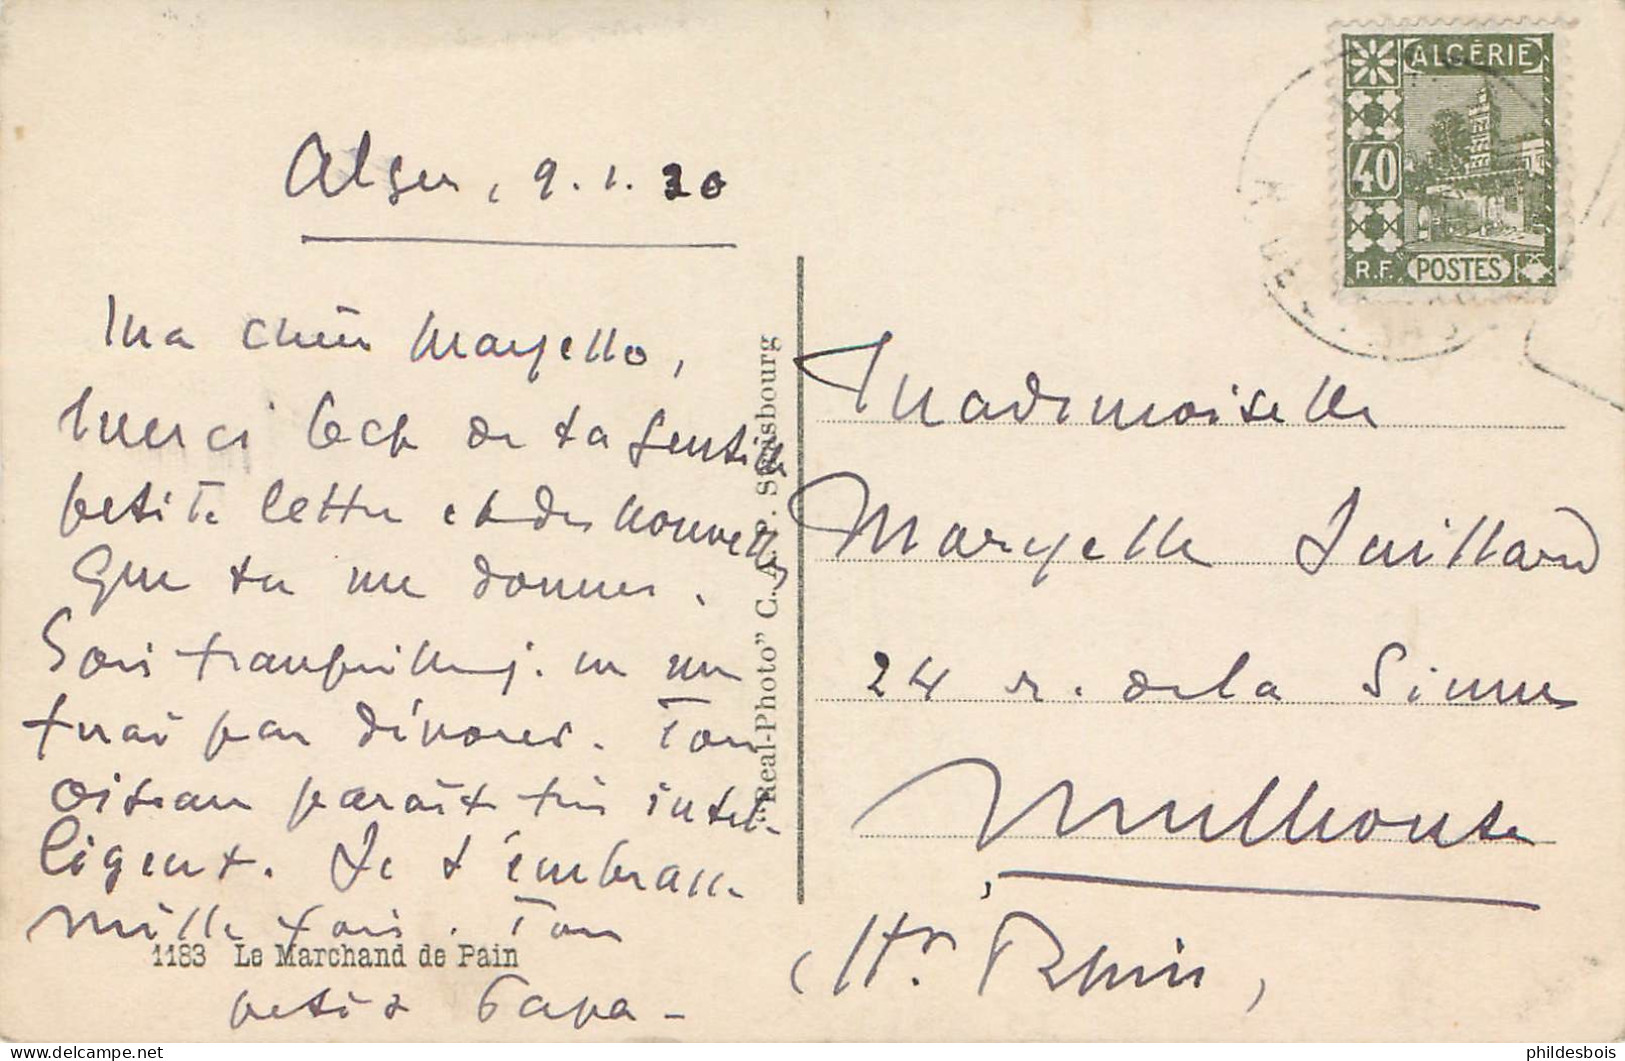 Alger, 9.1.30
Ma chère Maryelle,
merci bcp de ta gentille
petite lettre et des nouvelles
que tu me donnes.
Sois tranquille, j. ne me
ferai pas dévorer. Ton
oiseau paraît très intel-
ligent. Je t'embrasse
mille fois. Ton
petit Papa -
1183 Le Marchand de Pain
"Real-Photo" C. A. P. Strasbourg
ALGÉRIE
40
R.F. POSTES
Mademoiselle
Maryelle Juillard
24 r. de la Sinne
Mulhouse
(Ht. Rhin)
phildesbois